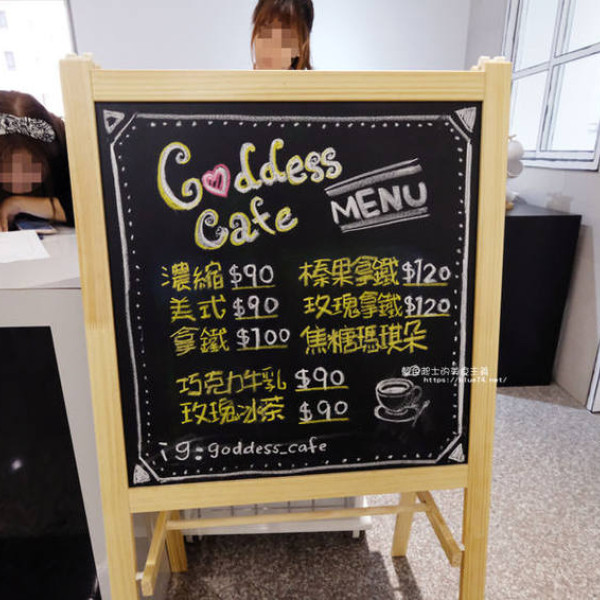 Goddess
Cafe
MENU
濃縮 $90
美式 $90
拿鐵 $100
榛果拿鐵 $120
玫瑰拿鐵 $120
焦糖瑪琪朵
巧克力牛乳 $90
玫瑰冰茶 $90
ig: goddess_cafe